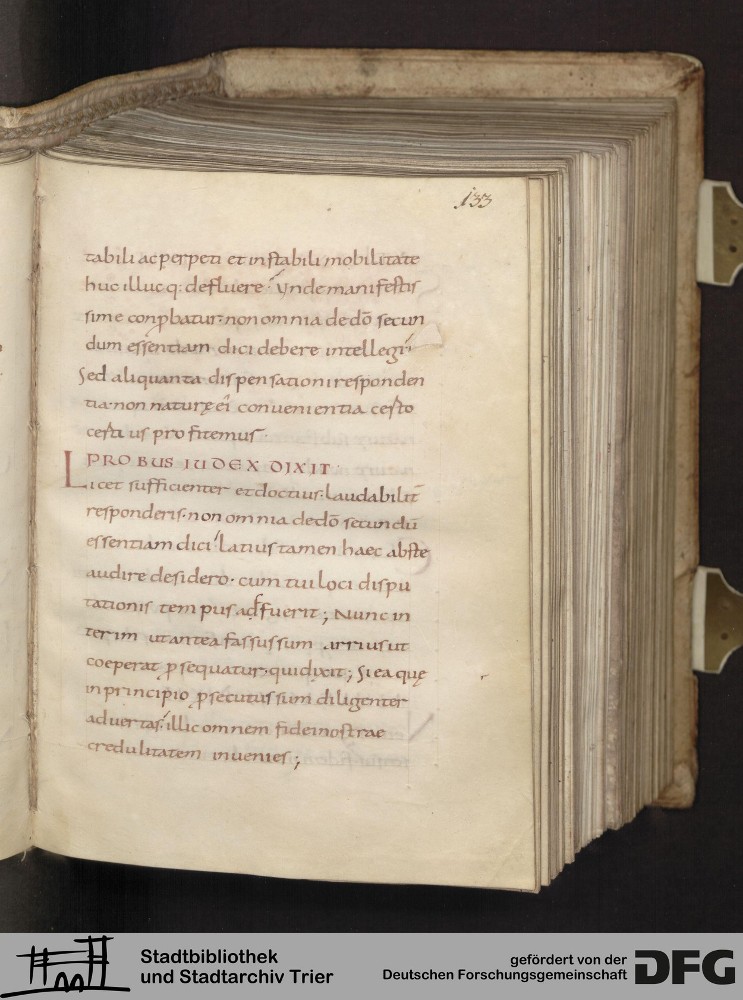 133
tabili ac perpeti et instabili mobilitate
huc illuc q: defluere. Vnde manifestis
sime conp̱batur. non omnia de dō secun
dum essentiam dici debere intellegi.
Sed aliquanta dispensationi responden
tia. non naturę ei convenientia cesto
cesti us profitemus
PROBUS IUDEX DIXIT.
Licet sufficienter et doctius. laudabilit̄
responderis. non omnia de dō secundū
essentiam dici. latius tamen haec abste
audire desidero. cum tui loci dispu
tationis tempus adfuerit; Nunc in
terim ut antea fassus sum arrius ut
coeperat p̱sequatur. quid dixit; Si ea quę
in principio p̱secutus sum diligenter
advertas. illic omnem fidei nostrae
credulitatem invenies;
Stadtbibliothek
und Stadtarchiv Trier
gefördert von der
Deutschen Forschungsgemeinschaft
DFG